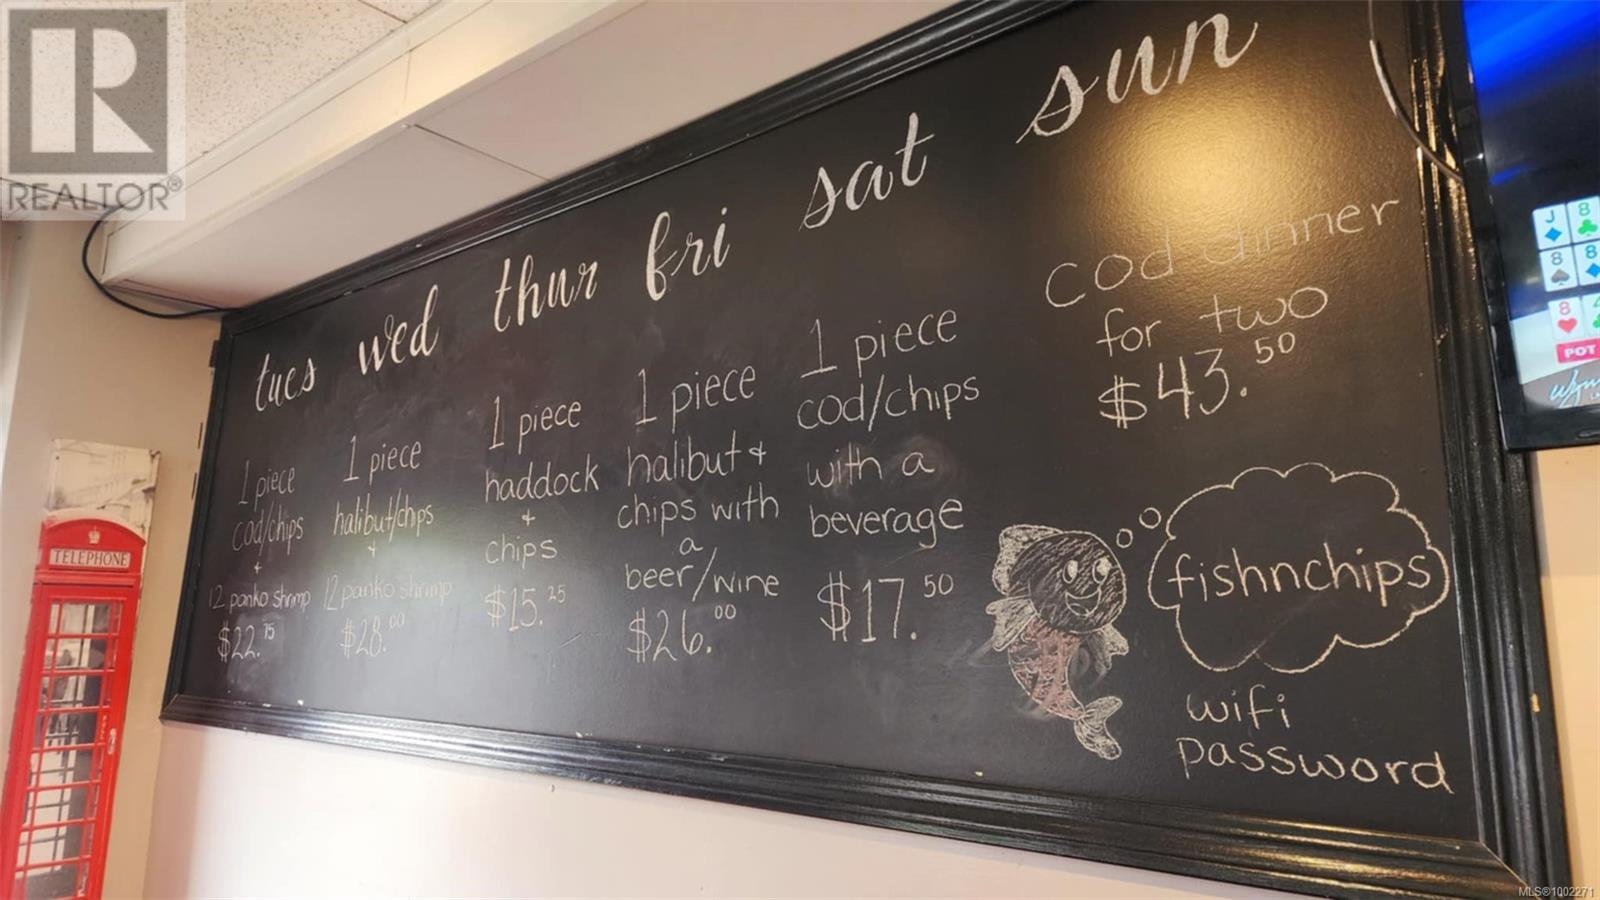 REALTOR®
TELEPHONE
tues
1 piece
cod/chips
+
12 panko shrimp
$22.75
wed
1 piece
halibut/chips
+
12 panko shrimp
$28.00
thur
1 piece
haddock
+
chips
$15.25
fri
1 piece
halibut +
chips with
a
beer/wine
$26.00
sat
1 piece
cod/chips
with a
beverage
$17.50
sun
cod dinner
for two
$43.50
fishnchips
wifi
password
J 8
8 8
8
POT
MLS®1002271